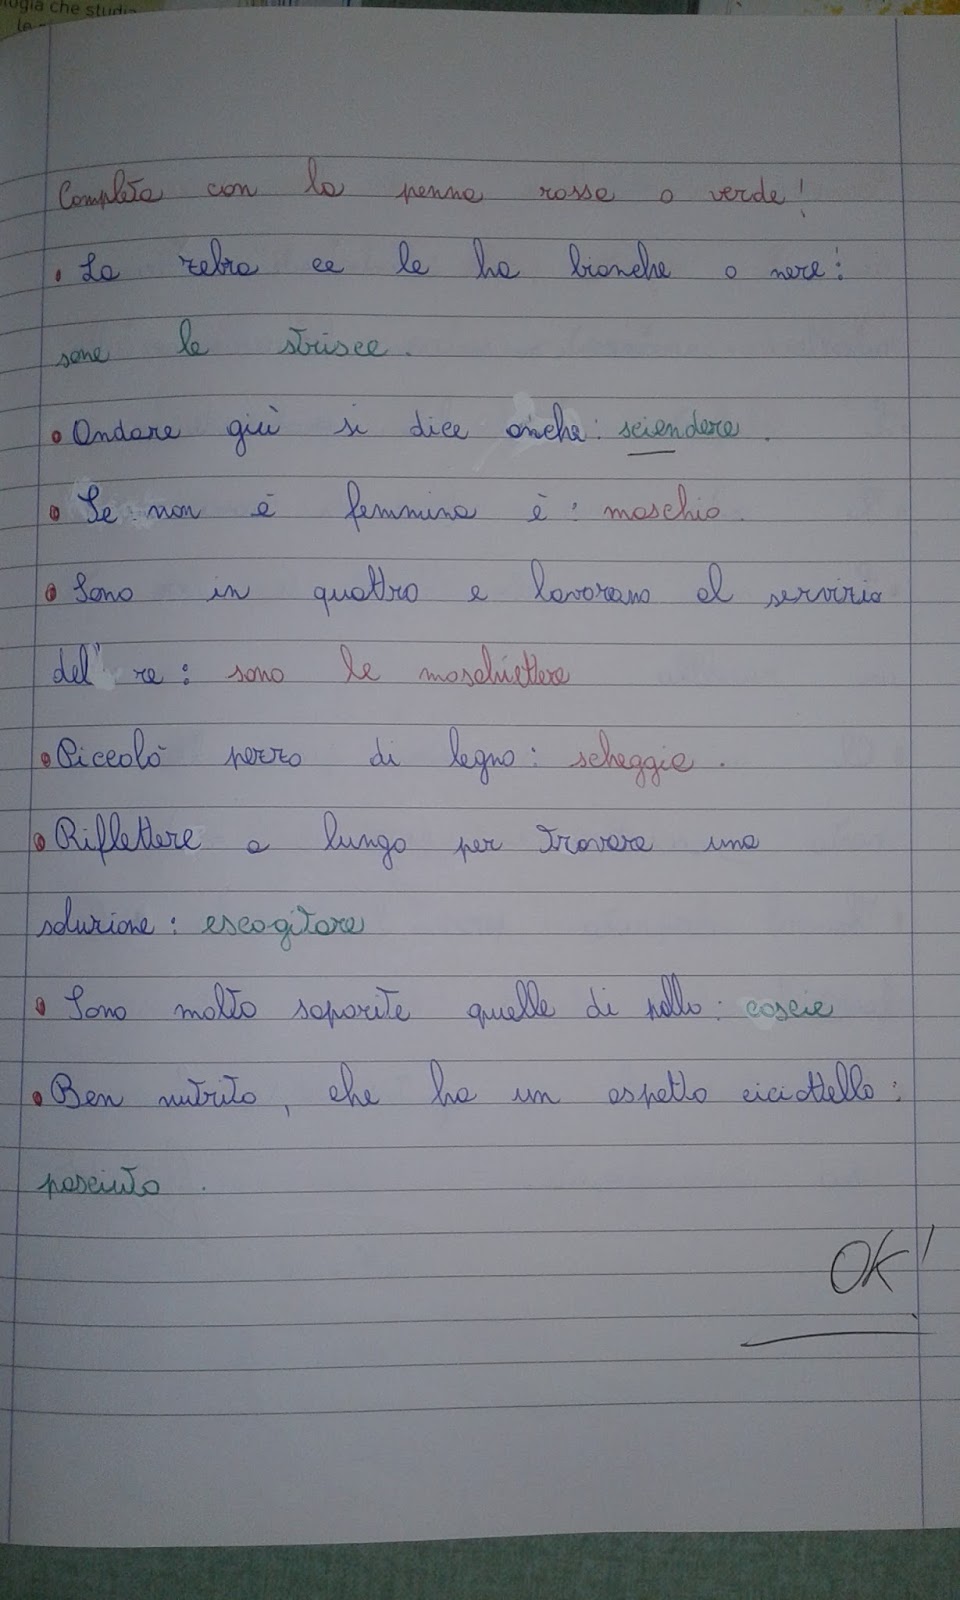 ologia che studia
Completa con la penna rossa o verde!
La zebra ce le ha bianche o nere:
sono le strisce.
Andare giù si dice anche: sciendere.
Se non è femmina è: maschio.
Sono in quattro e lavorano al servizio
del' re: sono le maschiettere
Piccolo pezzo di legno: scheggia.
Riflettere a lungo per trovare una
soluzione: escogitare
Sono molto saporite quelle di pollo: coscie
Ben nutrito, che ha un aspetto cicciottello:
pasciuto.
OK!